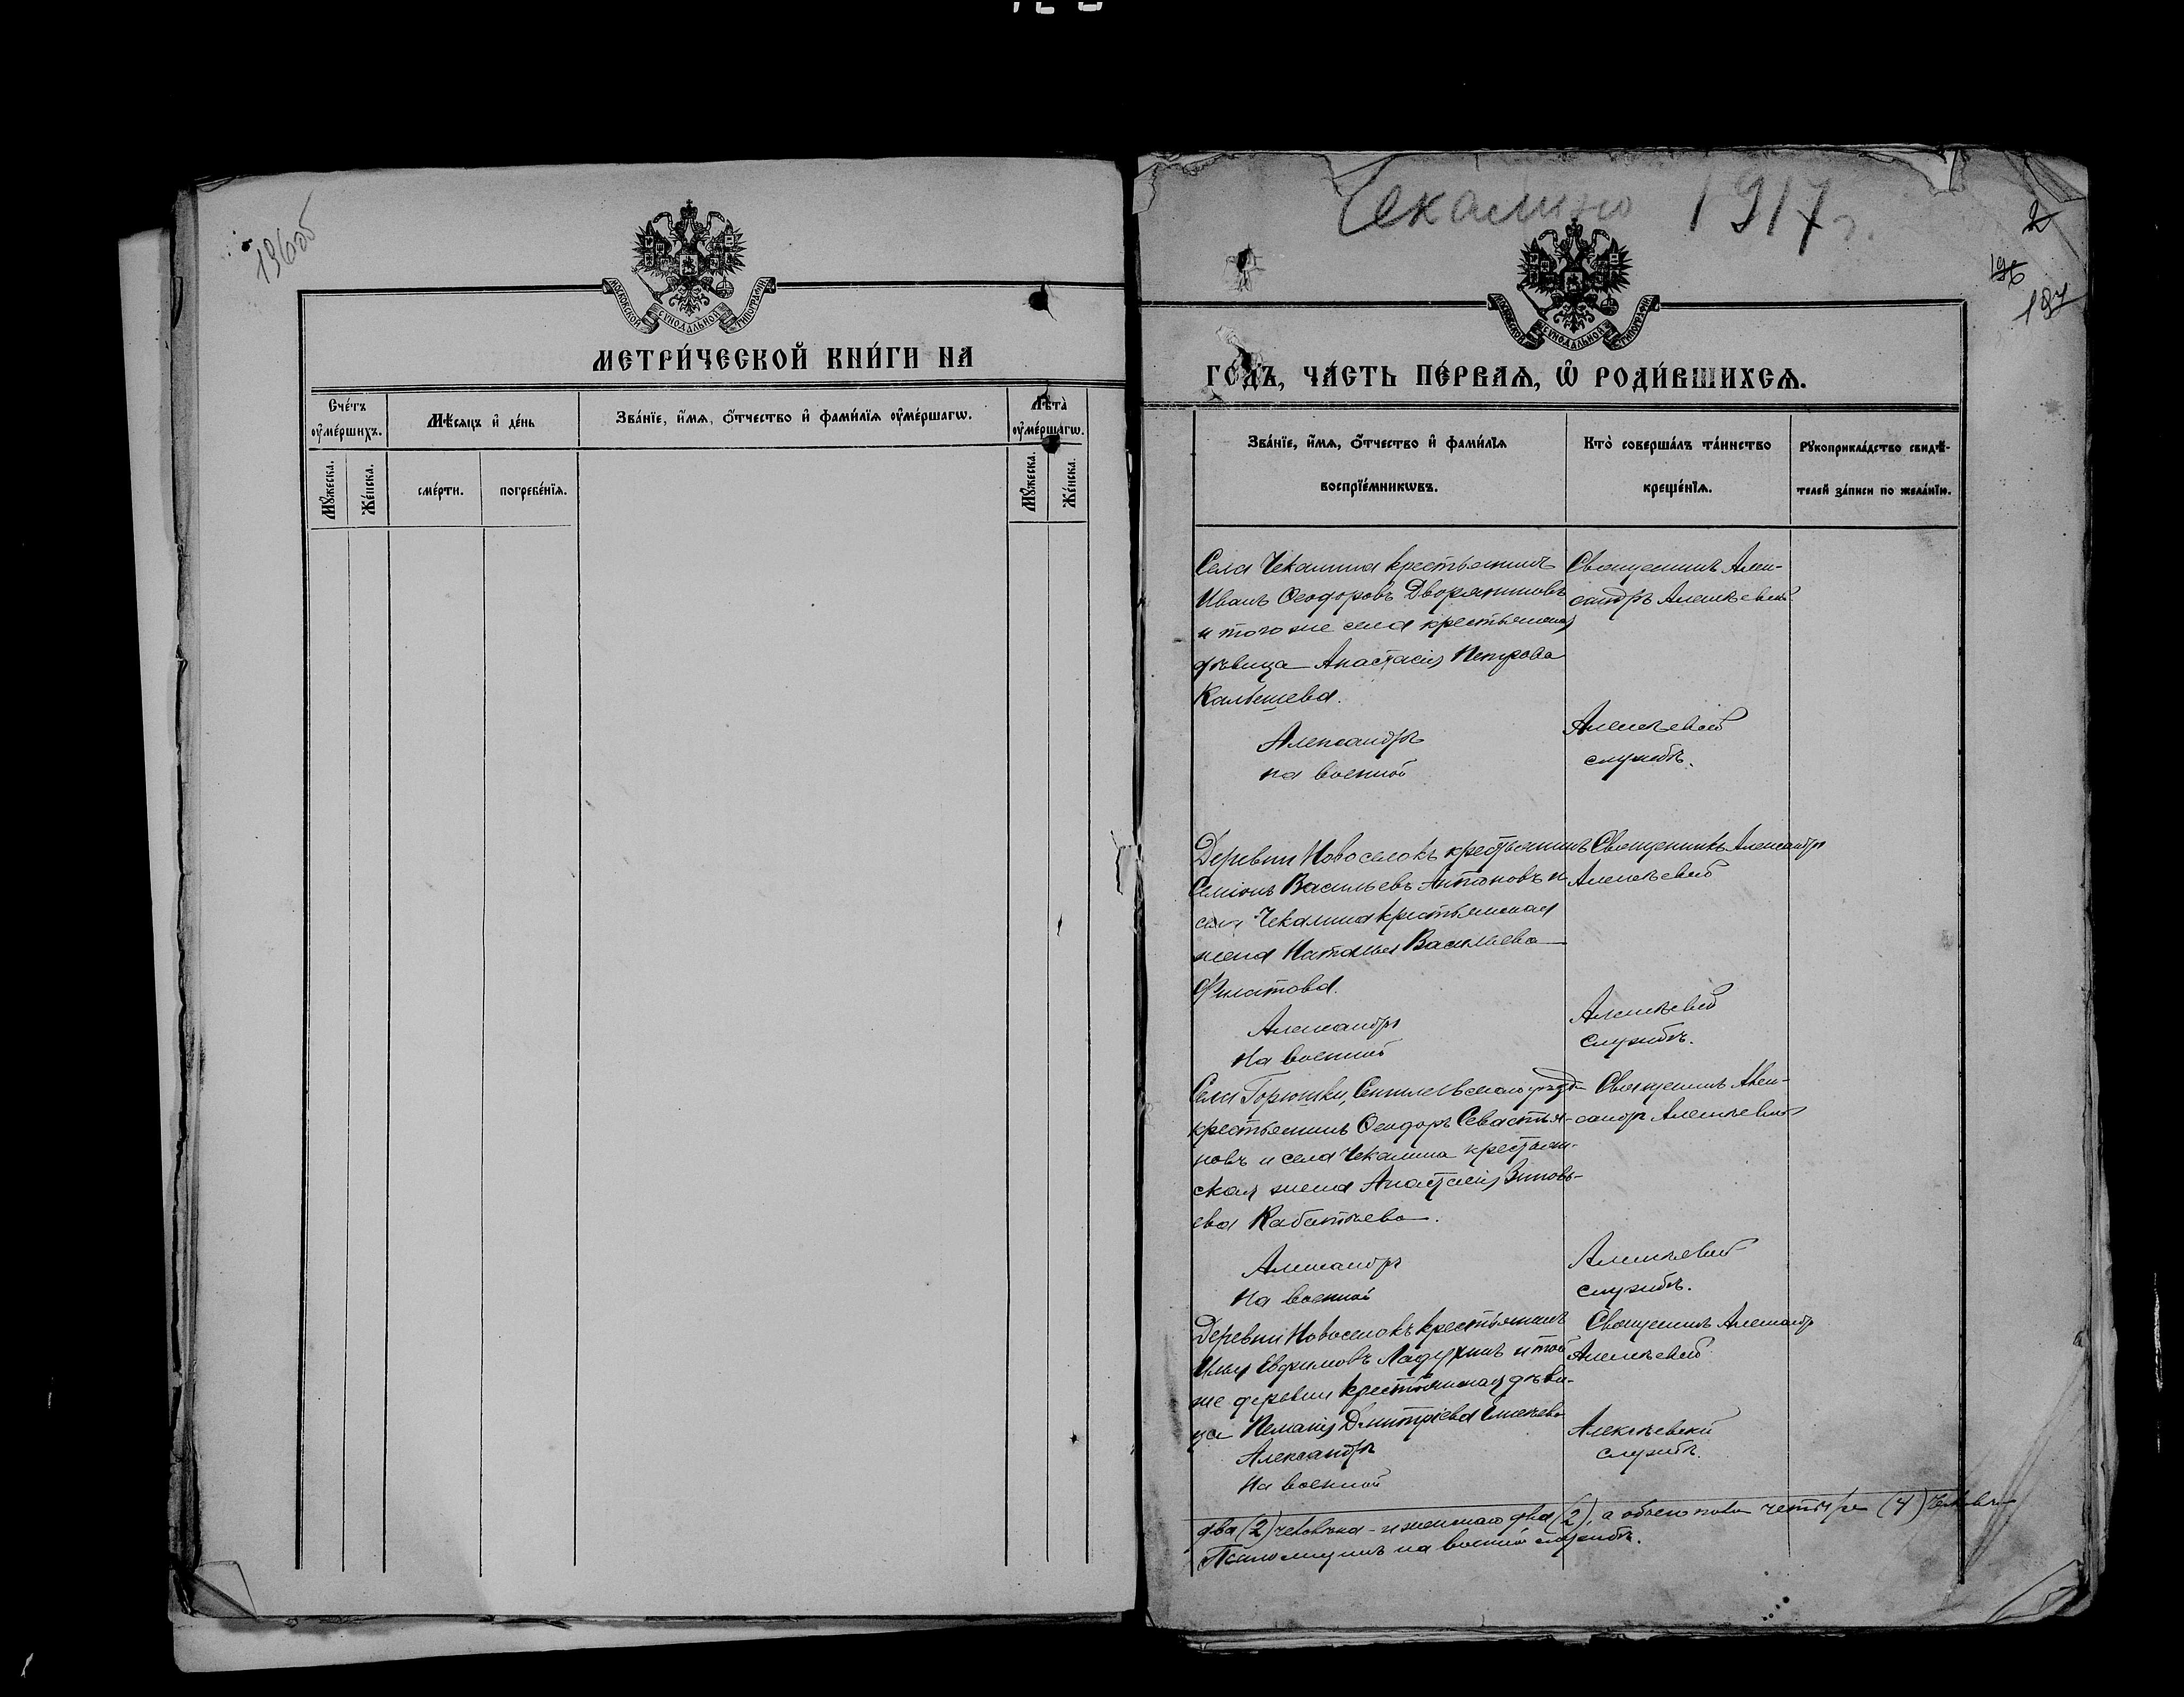 196об
МОСКОВСКОЙ СѴНОДАЛЬНОЙ ТИПОГРАФІИ
МЕТРИ́ЧЕСКОЙ КНИ́ГИ НА
Сче́тъ ᲂу҆ме́ршихъ.
Мѣ́сяцъ и҆ де́нь
Зва́нїе, и҆́мѧ, ѻ҆́тчество и҆ фами́лїѧ ᲂу҆ме́ршагѡ.
Лѣ́та ᲂу҆ме́ршагѡ.
Мꙋ́жеска.
Же́нска.
сме́рти.
погребе́нїѧ.
Мꙋ́жеска.
Же́нска.
Чекалино 1917 г.
2
196
197
МОСКОВСКОЙ СѴНОДАЛЬНОЙ ТИПОГРАФІИ
ГО́ДЪ, ЧА́СТЬ ПЕ́РВАѦ, Ѡ҆ РОДИ́ВШИХСѦ.
Зва́нїе, и҆́мѧ, ѻ҆́тчество и҆ фами́лїѧ
воспрїе́мникѡвъ.
Кто̀ соверша́лъ та́инство
креще́нїѧ.
Рꙋкоприкла́дство свидѣ́-
телей за́писи по жела́нїю.
Села Чекалина крестьянинъ
Иванъ Ѳеодоровъ Дворяниновъ
и того же села крестьянская
дѣвица Анастасія Петрова
Священникъ Алек-
сандръ Алексѣевскій
Александръ Алексѣевскій
на военной службѣ.
Деревни Новоселокъ крестьянинъ
Семіонъ Васильевъ Антановъ и
села Чекалина крестьянская
жена Наталья Васильева
Филатова.
Священникъ Александръ
Алексѣевскій
Александръ Алексѣевскій
На военной службѣ.
Села Горюшки, Сенгилеевскаго уѣзда
крестьянинъ Ѳеодоръ Севастья-
новъ и села Чекалина крестьян-
ская жена Анастасія Зиновь-
ева
Священникъ Алек-
сандръ Алексѣевскій
Александръ Алексѣевскій
На военной службѣ.
Деревни Новоселокъ крестьянинъ
Илья Евфимовъ Ладухинъ и той
же деревни крестьянская дѣви-
ца Пелагія Дмитріева
Священникъ Александръ
Алексѣевскій
Александръ Алексѣевскій
На военной службѣ.
два (2) человѣка и женскаго два (2), а обоего пола четыре (4) человѣка
Псаломщикъ на военной службѣ.